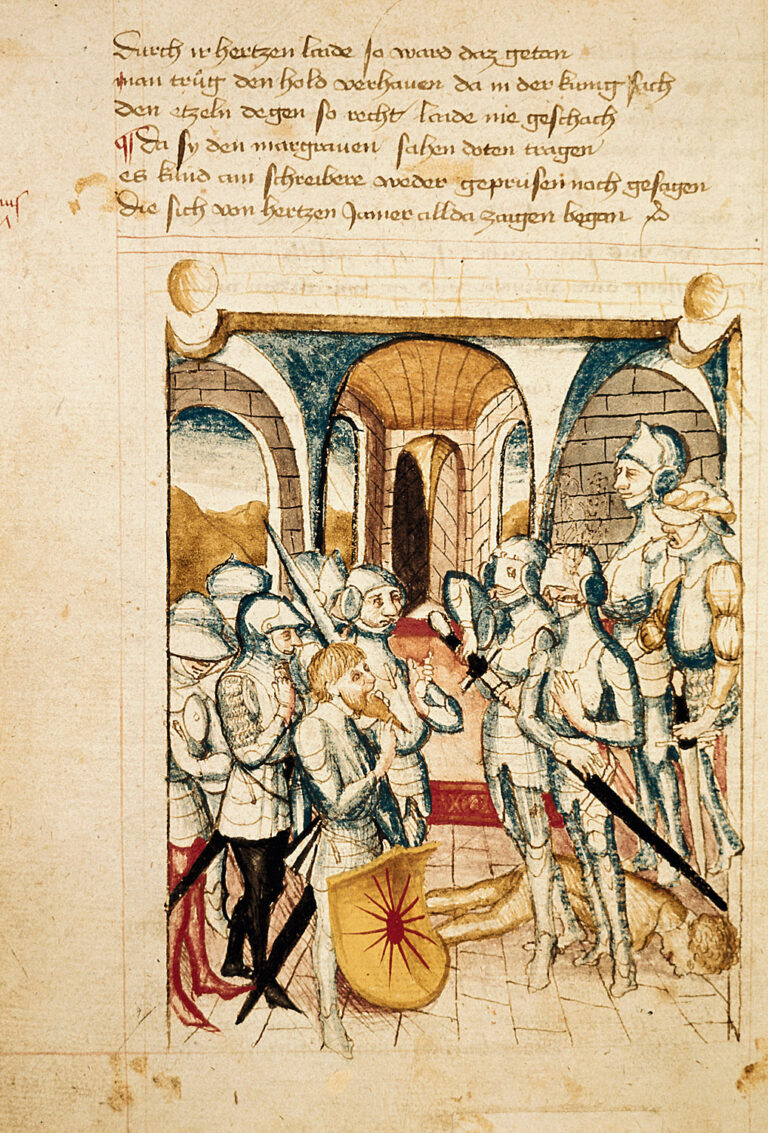 Durch ir hertzen laide so ward daz getan
man trůg den hold verhauen da in der kunig sach
den etzeln degen so recht laide nie geschach
¶ Da sy den margraven sahen doten tragen
es kund ain schreibere weder geprüfen noch gesagen
die sich von hertzen Jamer allda zaigen began